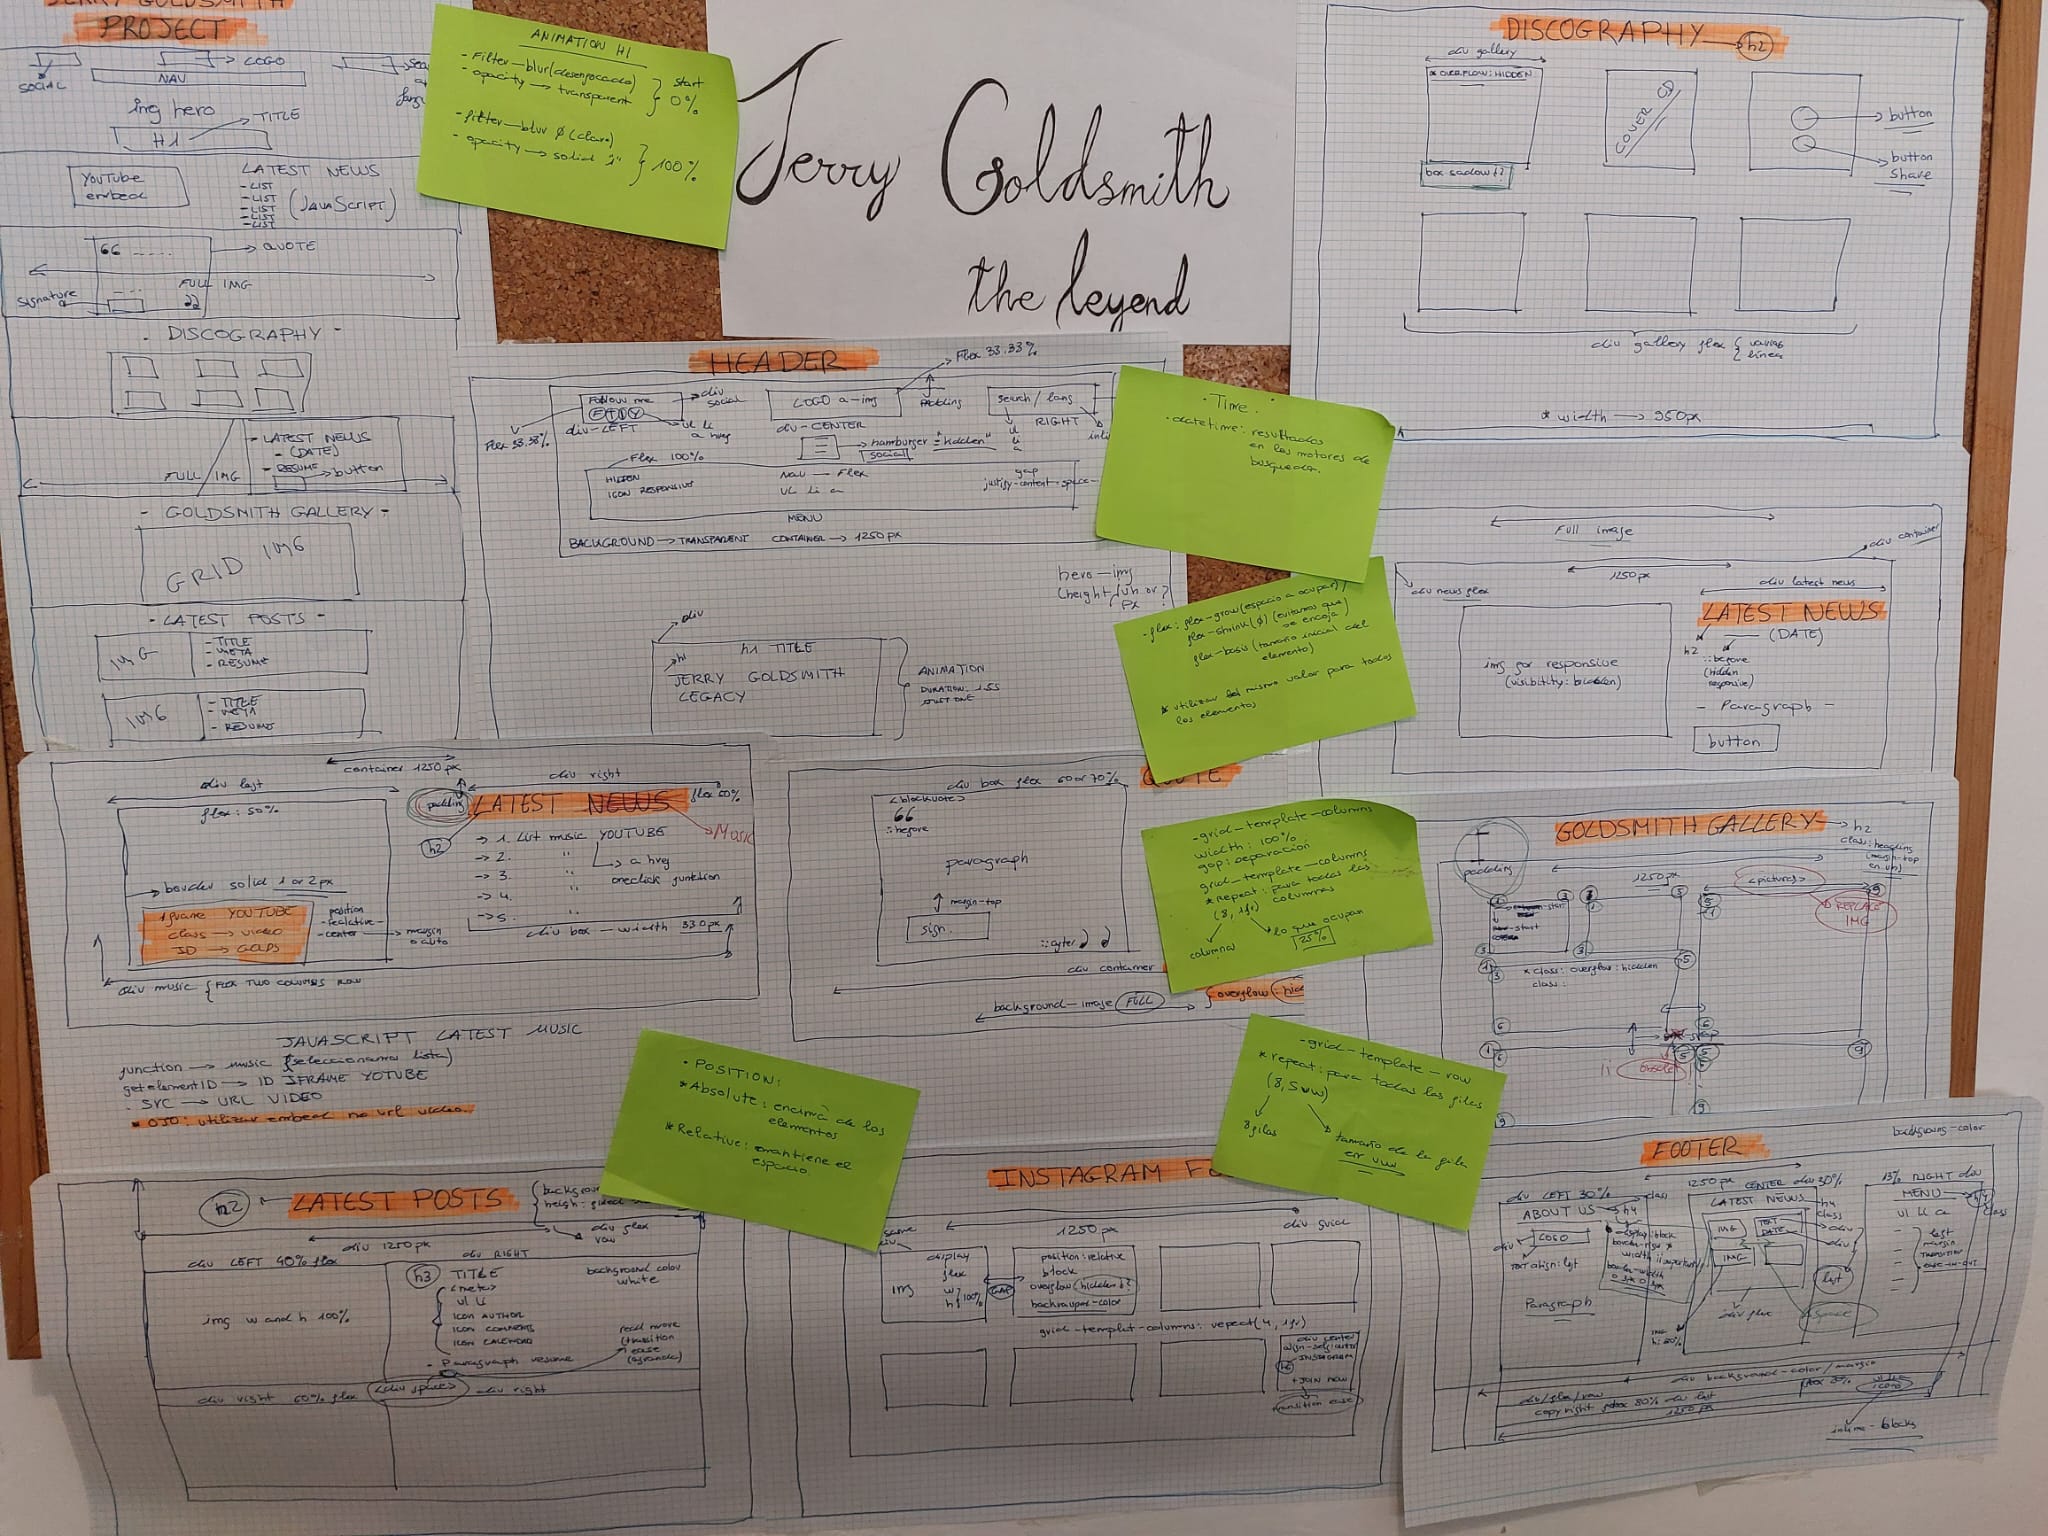 JERRY GOLDSMITH
PROJECT
LOGO
SOCIAL
NAV
img hero
TITLE
H1
YouTube
embed
LATEST NEWS
- LIST
- LIST
- LIST
- LIST
- LIST
(JAVASCRIPT)
66
QUOTE
FULL IMG
Signature
- DISCOGRAPHY -
- LATEST NEWS
- (DATE)
- RESUME
button
FULL IMG
- GOLDSMITH GALLERY -
GRID IMG
- LATEST POSTS -
IMG
- TITLE
- META
- RESUME
IMG
- TITLE
- META
- RESUME
ANIMATION H1
- Filter — blur (desenfocado)
- opacity → transparent
start
0%
- filter — blur ∅ (claro)
- opacity → solid "1"
100%
Jerry Goldsmith
the leyend
DISCOGRAPHY → h2
div gallery
* OVERFLOW: HIDDEN
COVER CD
button
button
share
box sadow ¿?
div gallery flex { varias
líneas
* width → 950px
HEADER
Flex 33.33%
Follow me
div
social
LOGO a-img
padding
search / lang
Flex 33.33%
div-LEFT
ul li
a href
div-CENTER
RIGHT
ul
li
a
hamburger = "hidden"
social
Flex 100%
HIDDEN
ICON RESPONSIVE
NAV — Flex
UL li a
gap
justify-content-space-
MENU
BACKGROUND → TRANSPARENT
CONTAINER → 1250 px
hero — img
(height) vh or ?
px
div
h1
h1 TITLE
JERRY GOLDSMITH
LEGACY
ANIMATION
DURATION: 1.5S
JUST ONE
- Time.
- datetime: resultados
en los motores de
búsqueda.
- flex: flex-grow (espacio a ocupar)
flex-shrink (∅) (evitamos que
se encoja)
flex-basis (tamaño inicial del
elemento)
* utilizar el mismo valor para todos
los elementos
Full image
div container
1250px
div news flex
div latest news
LATEST NEWS
(DATE)
h2
::before
(hidden
responsive)
img for responsive
(visibility: hidden)
- Paragraph -
button
container 1250 px
div left
div right
flex: 50%
padding
LATEST NEWS
flex 50%
Music
h2
→ 1. List music YOUTUBE
→ 2. "
→ 3. "
→ 4. "
→ 5. "
→ a href
oneclick function
border solid 1 or 2px
iframe YOUTUBE
class → video
ID → GOLDS
position
- relative -
- center → margin
o auto
div box — width 330px
div music { FLEX TWO COLUMNS ROW
JAVASCRIPT LATEST MUSIC
function → music {seleccionamos lista)
getelementID → ID IFRAME YOTUBE
. SRC → URL VIDEO
* OJO: utilizar embed no url video.
QUOTE
div box flex 60 or 70%
<blockuote>
66
::before
paragraph
margin-top
sign.
::after
div container
background-image FULL
overflow: hid
- grid-template-columns
width: 100%
gap: separación
grid-template-columns
* repeat: para todas las
(8, 1fr) columnas
columna
lo que ocupan
25%
GOLDSMITH GALLERY → h2
class: heading
(margin-top
en vh)
padding
1250px
<picture>
REPLACE
IMG
* class: overflow: hidden
class:
- grid-template-row
* repeat: para todas las filas
(8, 5vw)
8 filas
tamaño de la fila
en vw
- POSITION:
* Absolute: encima de los
elementos
* Relative: mantiene el
espacio
h2
LATEST POSTS
div 1250px
div flex
row
div LEFT 40% flex
div RIGHT
h3
TITLE
<meta>
ul li
ICON AUTHOR
ICON COMMENTS
ICON CALENDAR
background color
white
img w and h 100%
read more
(transition
ease
(agranda)
- Paragraph resume
div right 60% flex
<div space>
div right
INSTAGRAM
1250 px
div grid
same
div
img
display
flex
w
h } 100%
position: relative
block
overflow (hidden ¿?
background-color
grid-templat-columns: repeat(4, 1fr)
div center
align-self:center
INSTAGRAM
+ JOIN NOW
transition ease
FOOTER
background-color
1250 px
div LEFT 30%
class
CENTER div 30%
RIGHT div
ABOUT US → h4
LATEST NEWS
h4
class
MENU
class
ul li a
div
LOGO
IMG
TEXT
DATE
div
text align: left
display: block
IMG
div
left
margin
TRANSITION
EASE-IN-OUT
Paragraph
div flex
space
div background-color/margin
div/flex/row
copyright flex 80% div left
1250 px
inline-blocks